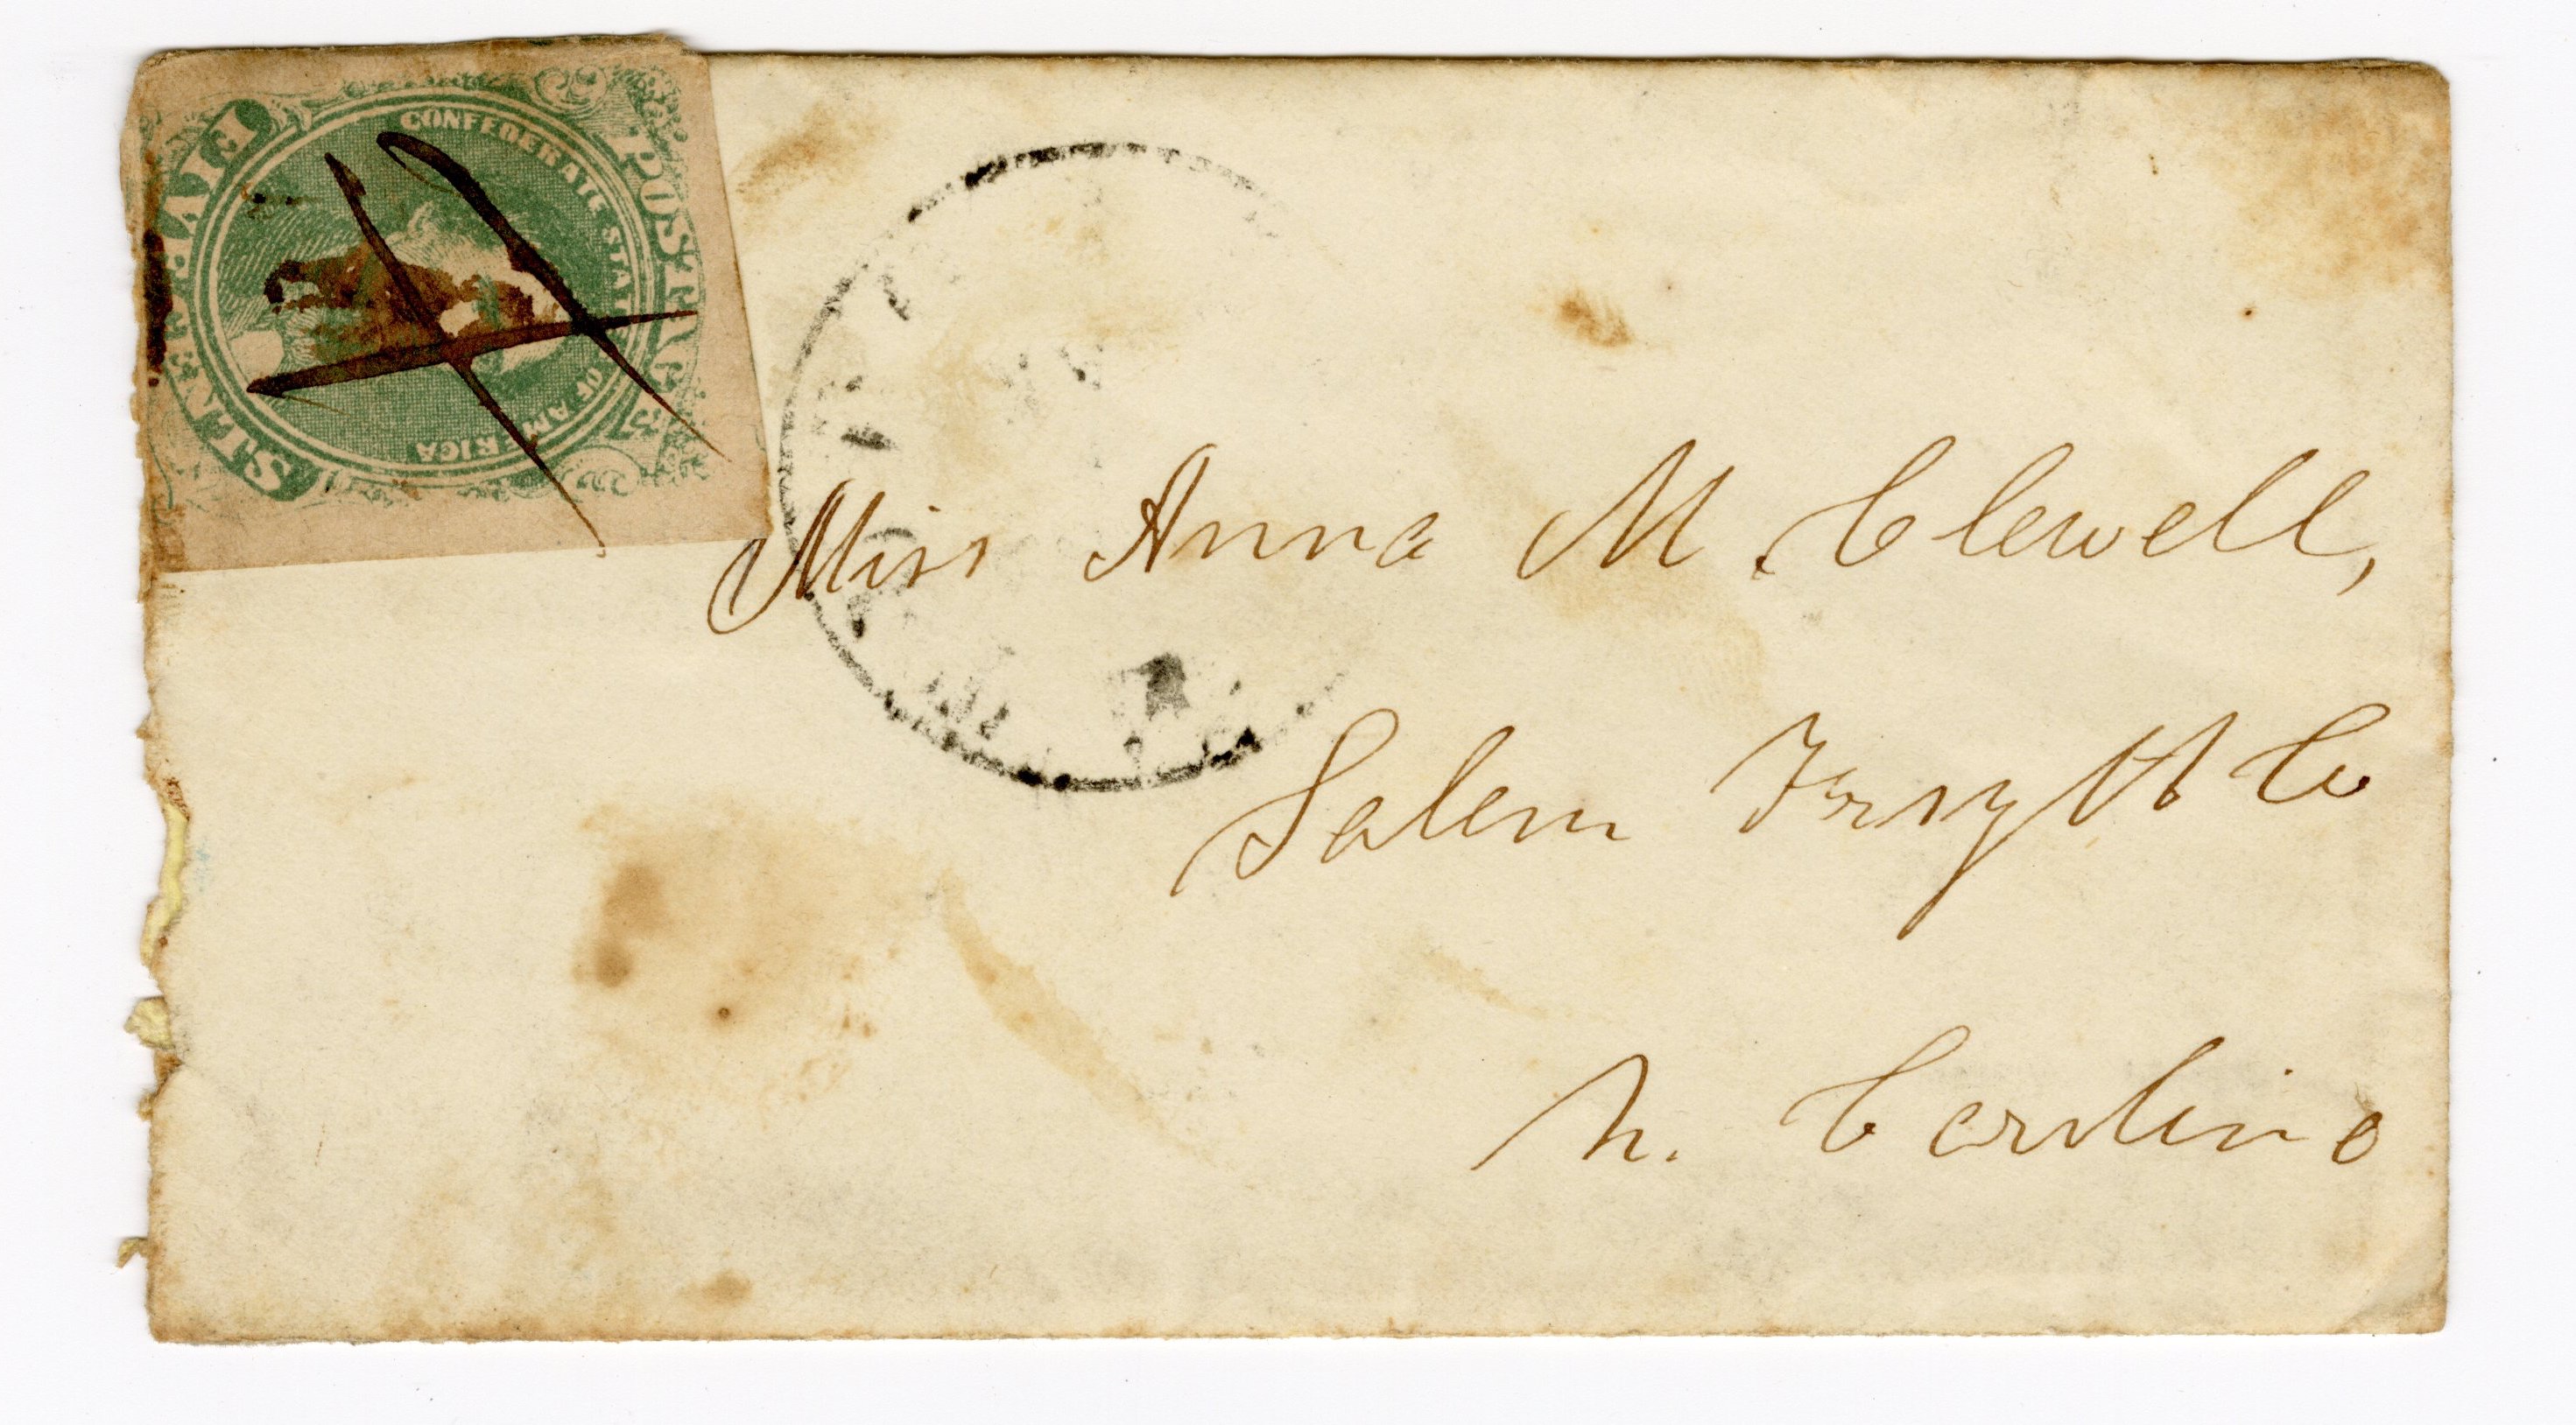 CONFEDERATE STATES OF AMERICA
POSTAGE
FIVE CENTS
Miss Anna M. Clewell,
Salem Forsyth Co
N. Carolina